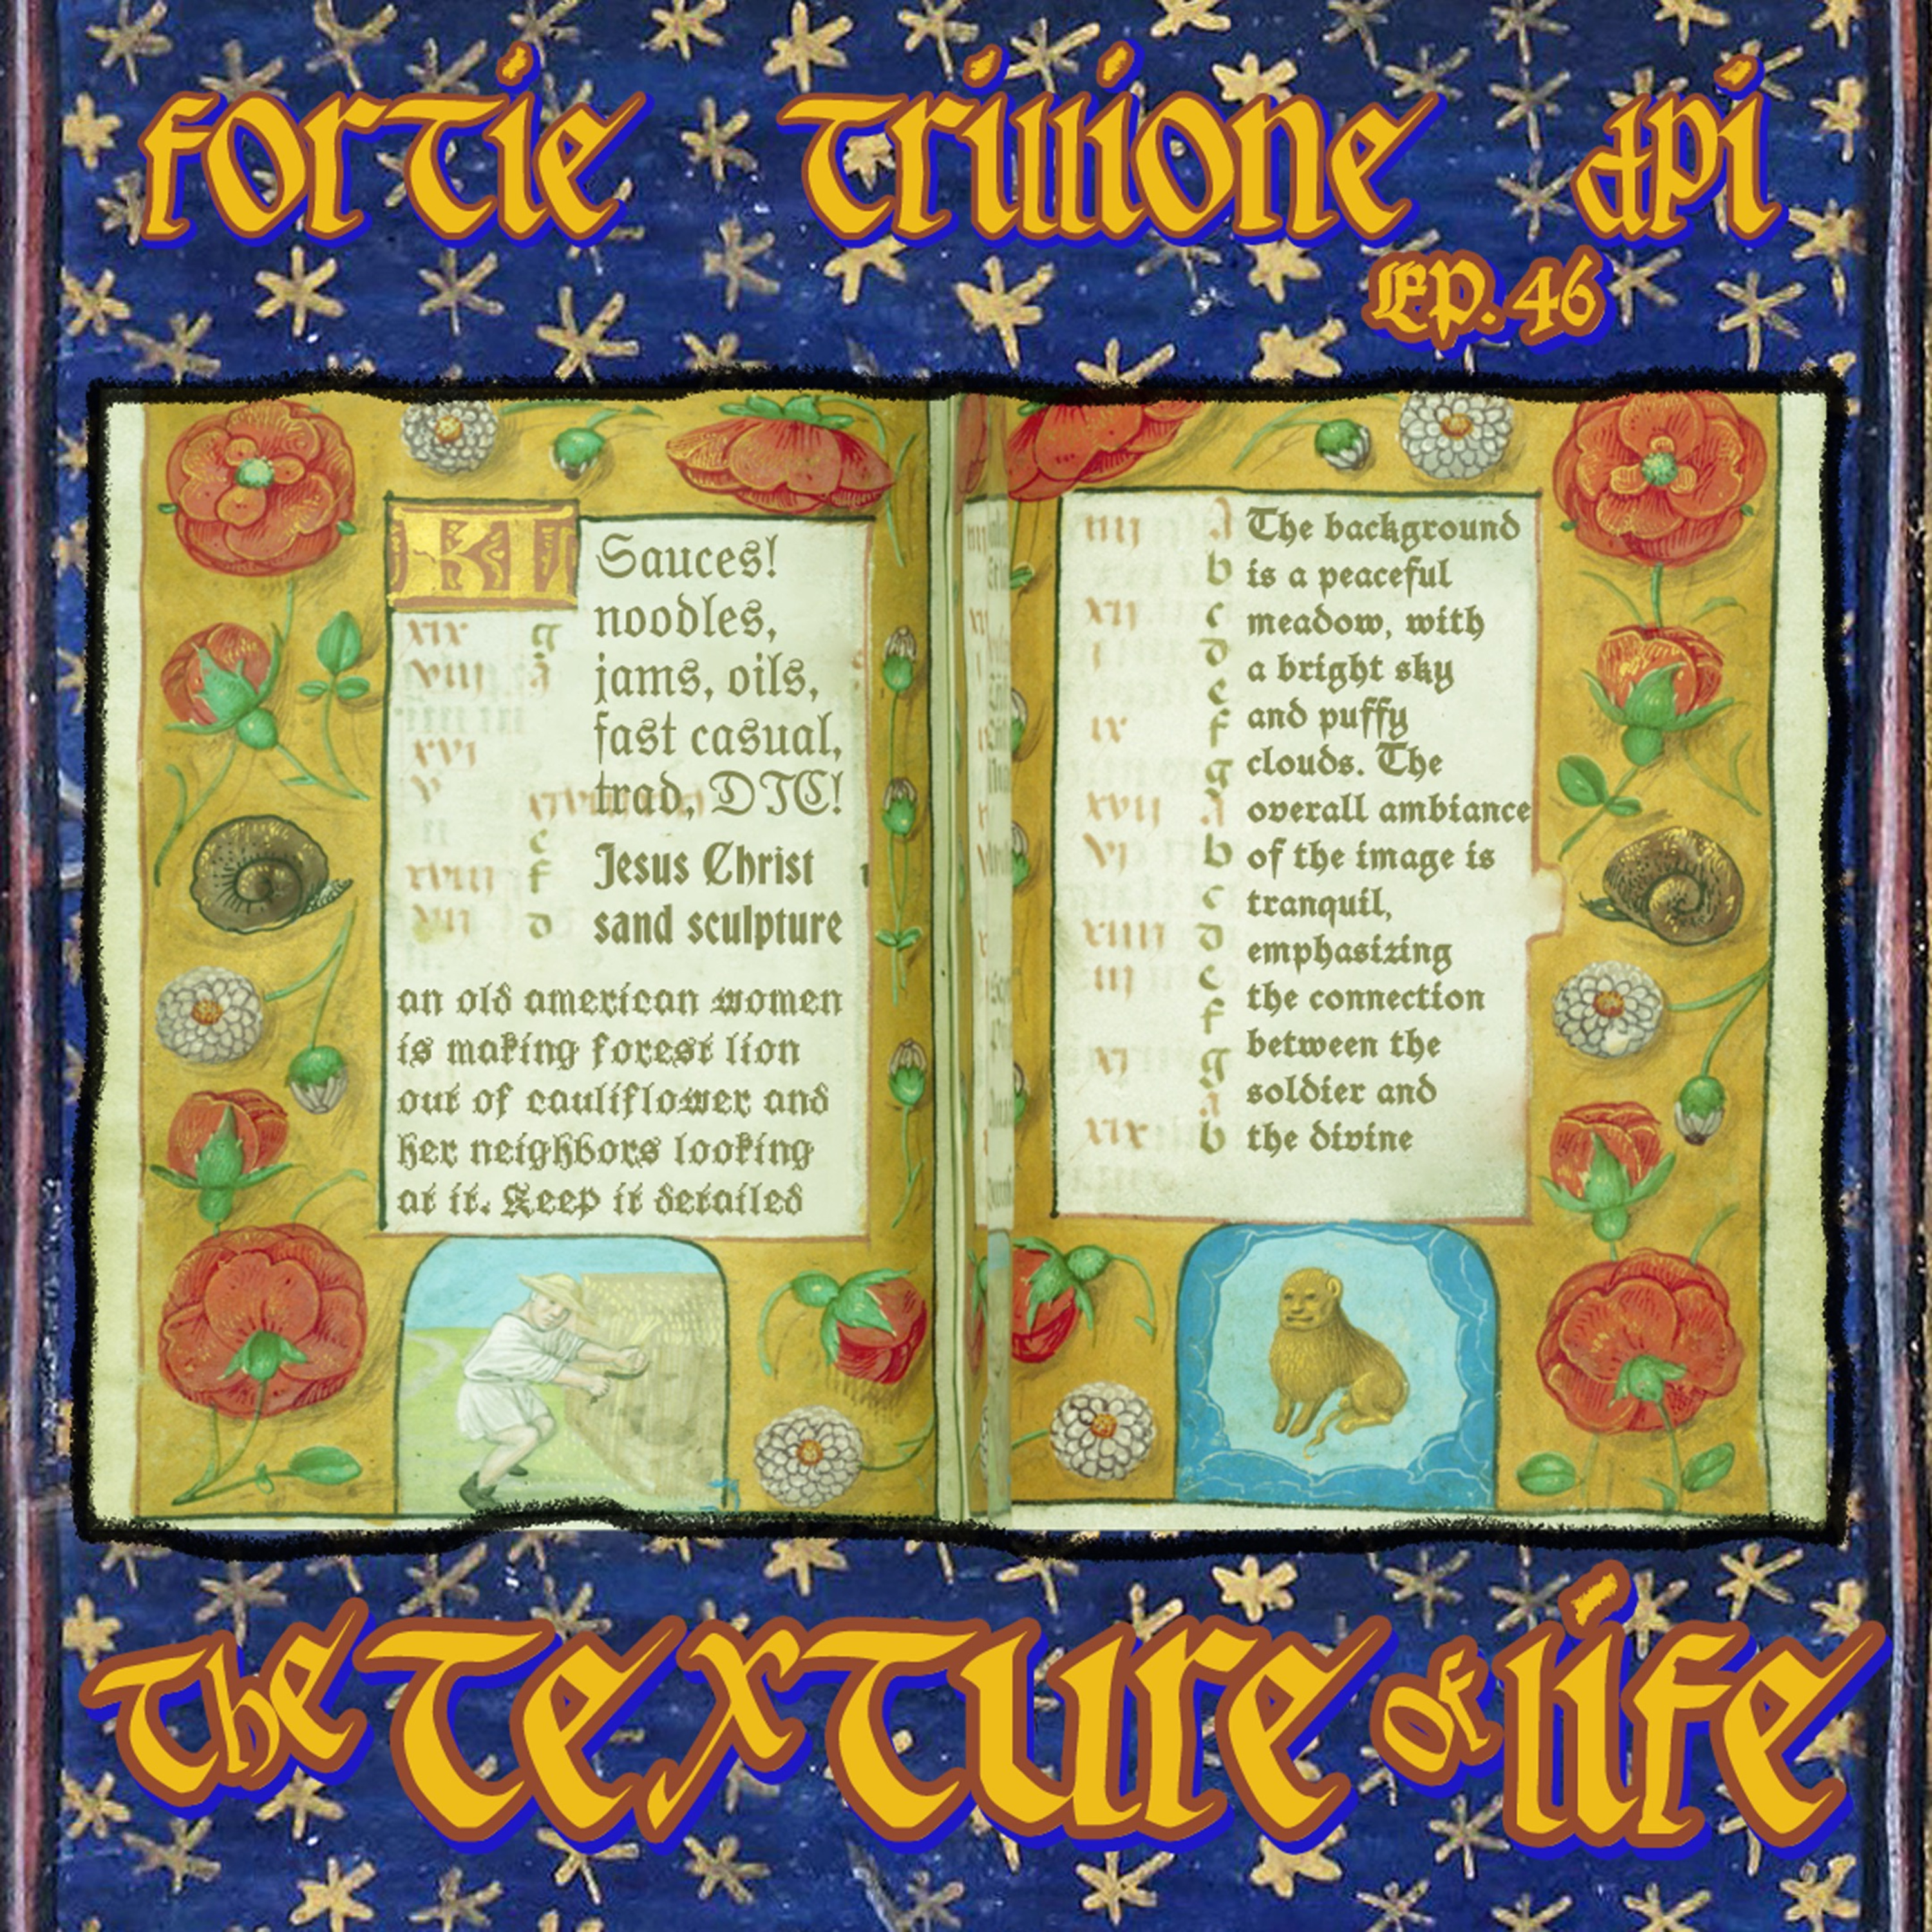 fortie trillione dpi
EP. 46
KL
Sauces!
noodles,
jams, oils,
fast casual,
trad, DTC!
Jesus Christ
sand sculpture
an old american women
is making forest lion
out of cauliflower and
her neighbors looking
at it. Keep it detailed
xix g
viii A
xvi
v
c
xviii f
vii d
iiii A The background
b is a peaceful
xii c meadow, with
i d a bright sky
e
ix f and puffy
g clouds. The
xvii A overall ambiance
vi b of the image is
c tranquil,
xiiii d emphasizing
iii e the connection
f
xi g between the
A soldier and
xix b the divine
The Texture of life